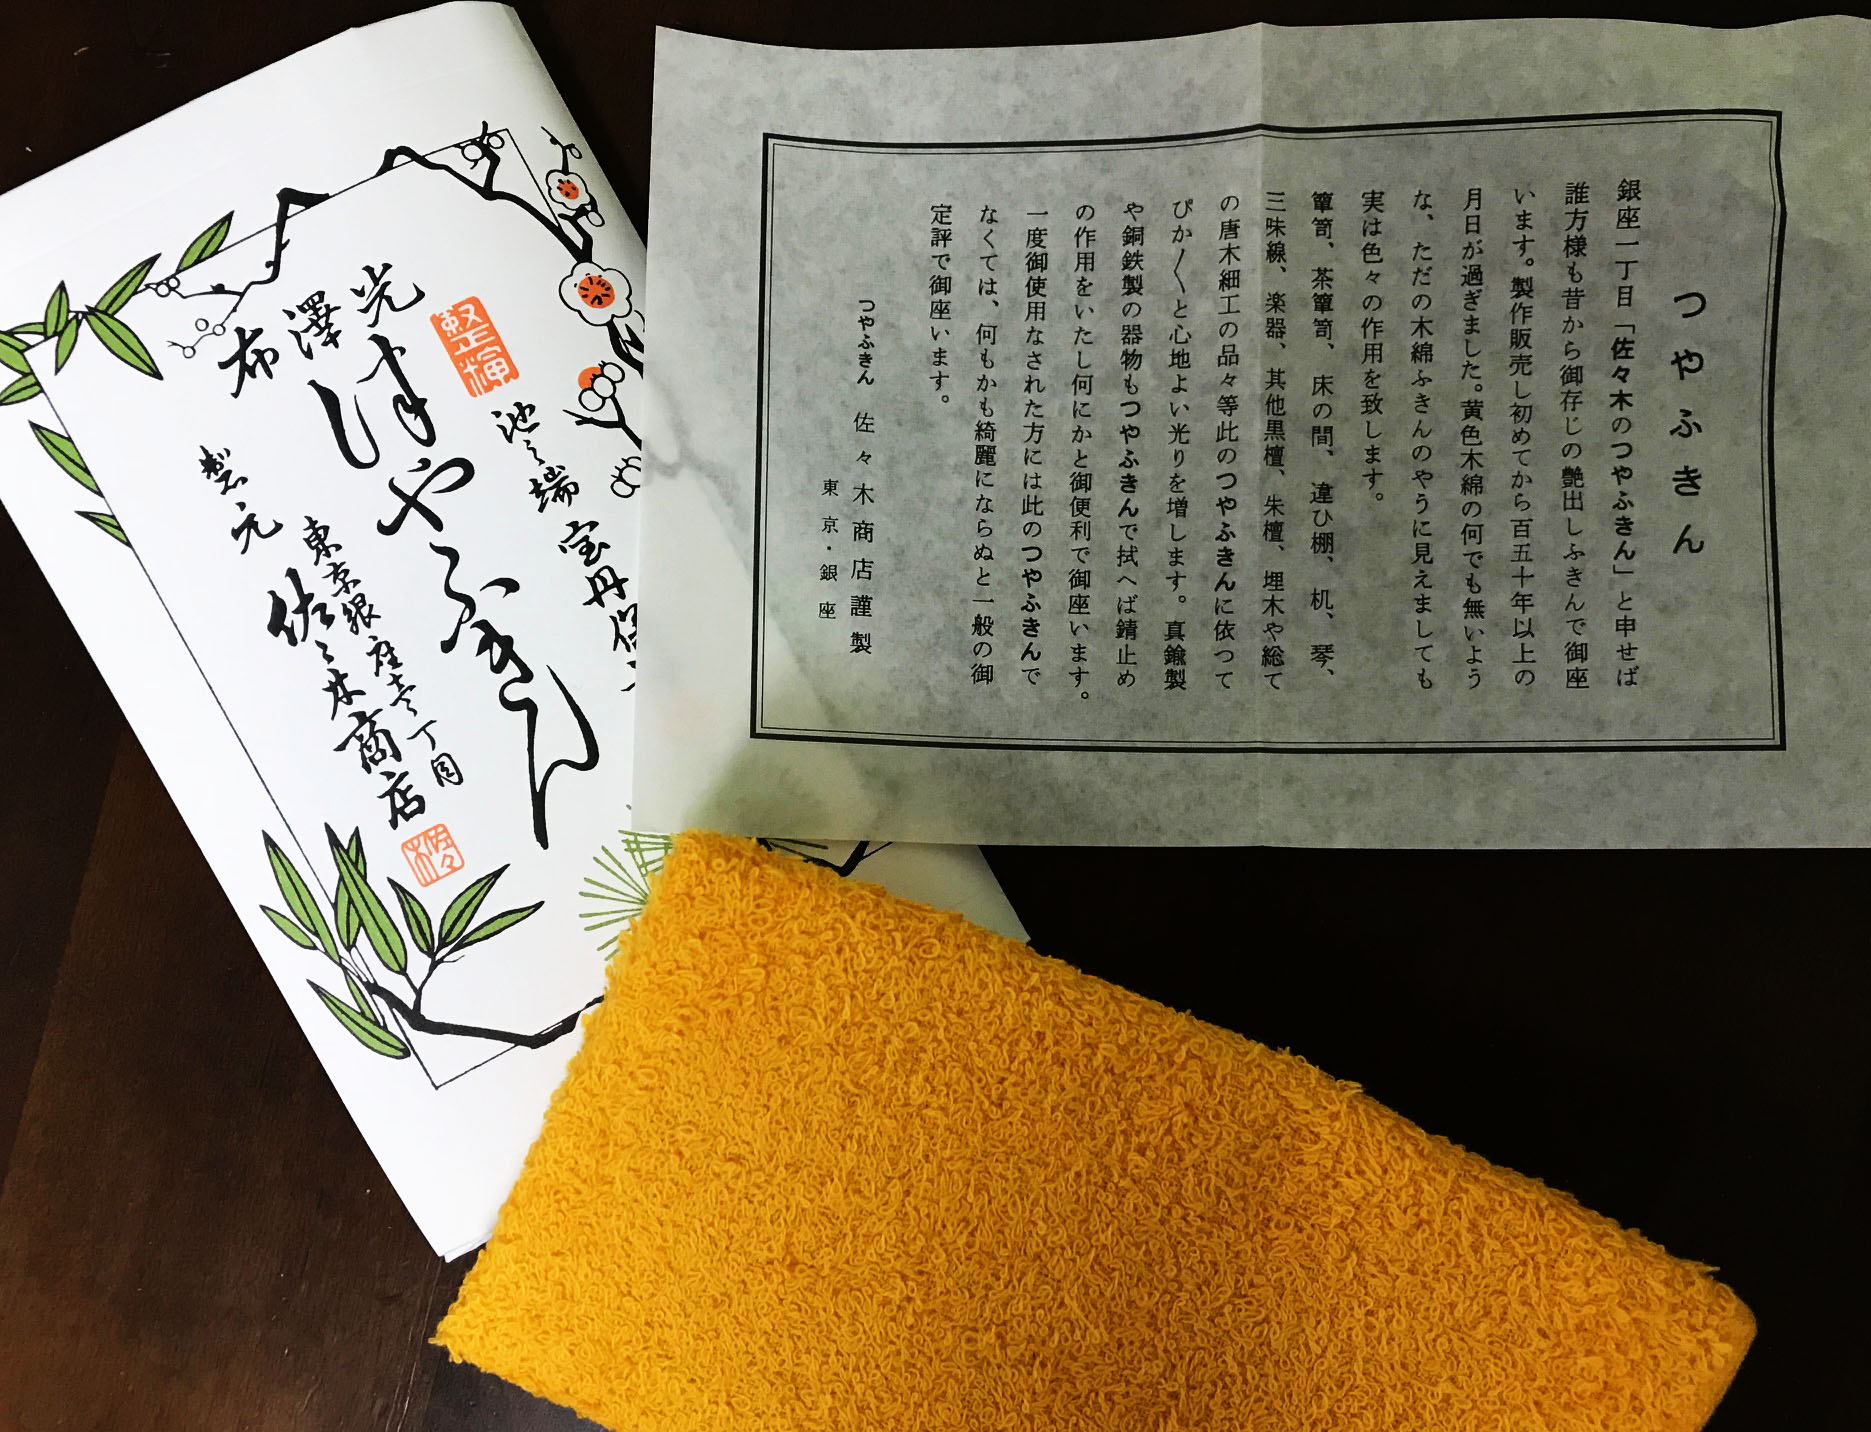 つやふきん
銀座一丁目「佐々木のつやふきん」と申せば
誰方様も昔から御存じの艶出しふきんで御座
います。製作販売し初めてから百五十年以上の
月日が過ぎました。黄色木綿の何でも無いよう
な、ただの木綿ふきんのやうに見えましても
実は色々の作用を致します。
簞笥、茶簞笥、床の間、違ひ棚、机、琴、
三味線、楽器、其他黒檀、朱檀、埋木や総て
の唐木細工の品々等此のつやふきんに依つて
ぴか〳〵と心地よい光りを増します。真鍮製
や銅鉄製の器物もつやふきんで拭へば錆止め
の作用をいたし何にかと御便利で御座います。
一度御使用なされた方には此のつやふきんで
なくては、何もかも綺麗にならぬと一般の御
定評で御座います。
つやふきん 佐々木商店謹製
東京・銀座
池之端 宝丹
整輝
つやふきん
光澤布
東京銀座壱丁目
製元 佐々木商店
佐々木